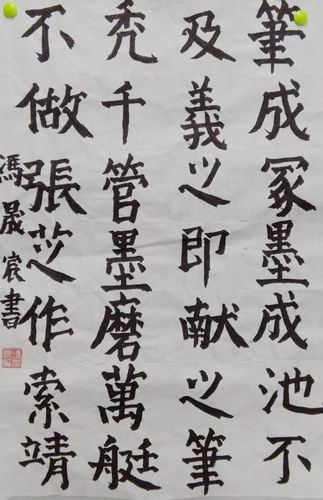 筆成冢墨成池不
及羲之即献之筆
禿千管墨磨萬艇
不做張芝作索靖
馮晟宸書